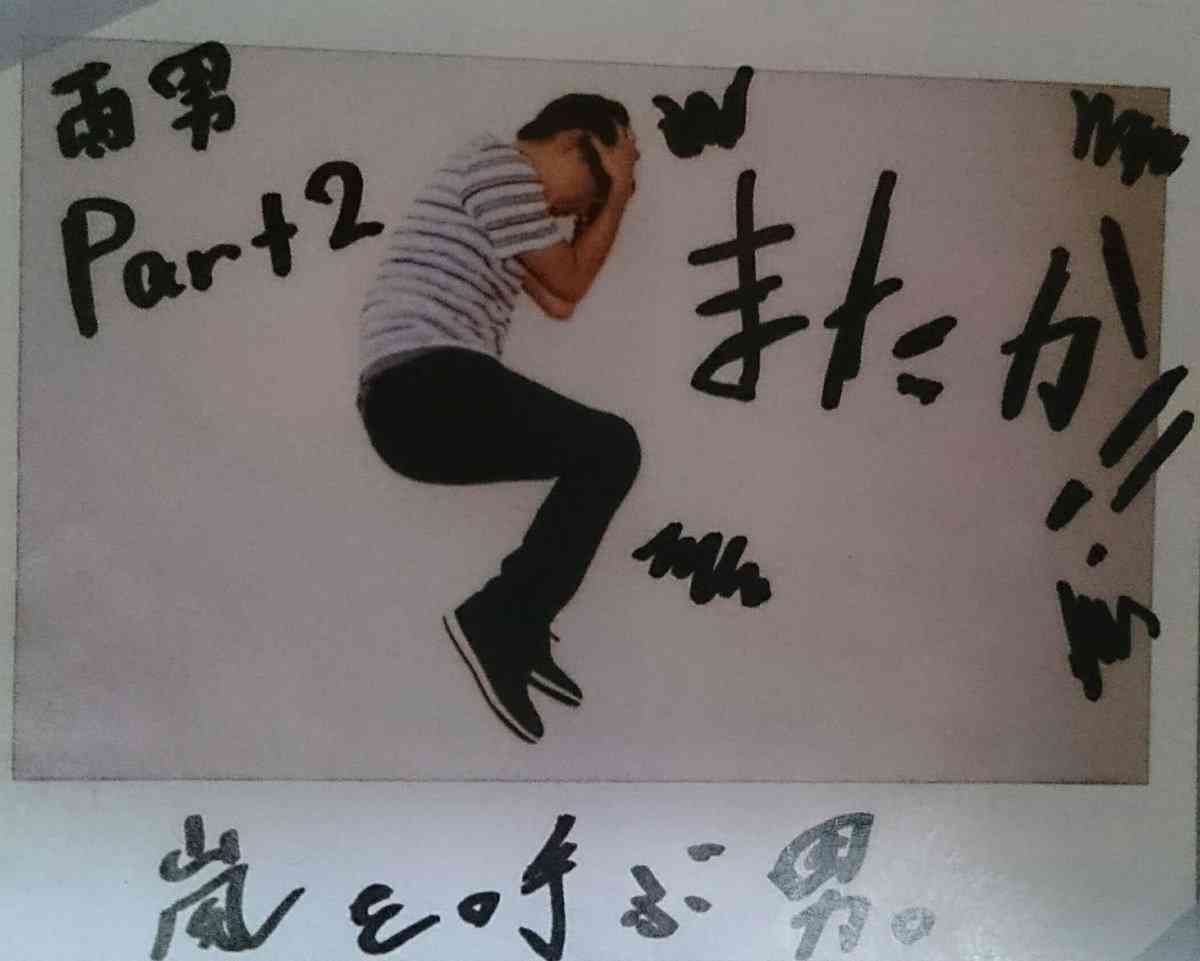 雨男
Part2
またか!!
嵐を呼ぶ男。